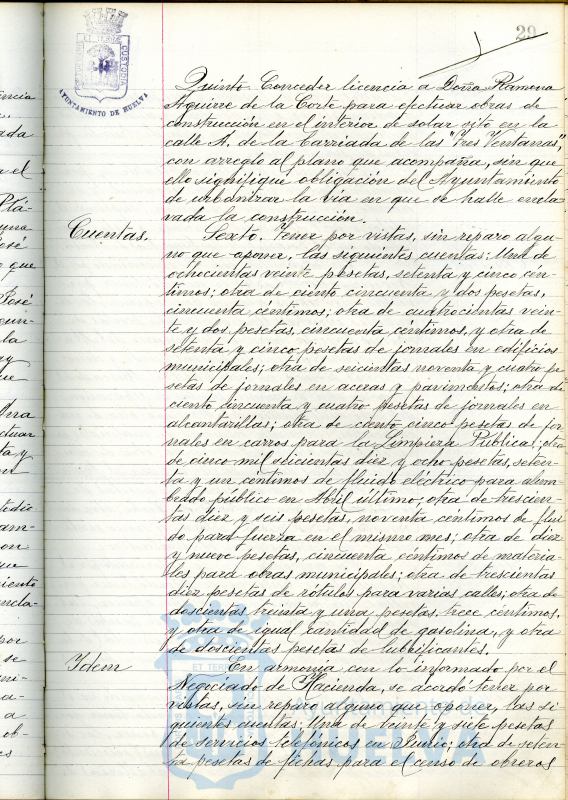 29
AYUNTAMIENTO DE HUELVA
Quinto. Conceder licencia a Doña Ramona
Aguirre de la Corte para efectuar obras de
construcción en el interior de solar sito en la
calle A. de la barriada de las "Tres Ventanas",
con arreglo al plano que acompaña, sin que
ello signifique obligación del Ayuntamiento
de urbanizar la vía en que se halle encla-
vada la construcción.
Cuentas.
Sexto. Tener por vistas, sin reparo algu-
no que oponer, las siguientes cuentas: Una de
ochocientas veinte pesetas, setenta y cinco cén-
timos; otra de ciento cincuenta y dos pesetas,
cincuenta céntimos; otra de cuatrocientas vein-
te y dos pesetas, cincuenta céntimos, y otra de
setenta y cinco pesetas de jornales en edificios
municipales; otra de seicientas noventa y cuatro pe-
setas de jornales en aceras y pavimentos; otra de
ciento cincuenta y cuatro pesetas de jornales en
alcantarillas; otra de ciento cinco pesetas de jor-
nales en carros para la Limpieza Pública; otra
de cinco mil seicientas diez y ocho pesetas, seten-
ta y un céntimos de fluido eléctrico para alum-
brado público en Abril último; otra de trescien-
tas diez y seis pesetas, noventa céntimos de flui-
do para fuerza en el mismo mes; otra de diez
y nueve pesetas, cincuenta céntimos de materia-
les para obras municipales; otra de trescientas
diez pesetas de rótulos para varias calles; otra de
doscientas treinta y una pesetas, trece céntimos,
y otra de igual cantidad de gasolina, y otra
de doscientas pesetas de lubrificantes.
Idem
En armonía con lo informado por el
Negociado de Hacienda, se acordó tener por
vistas, sin reparo alguno que oponer, las si-
guientes cuentas: Una de veinte y siete pesetas
de servicios telefónicos en Junio; otra de seten-
ta pesetas de fichas para el censo de obreros